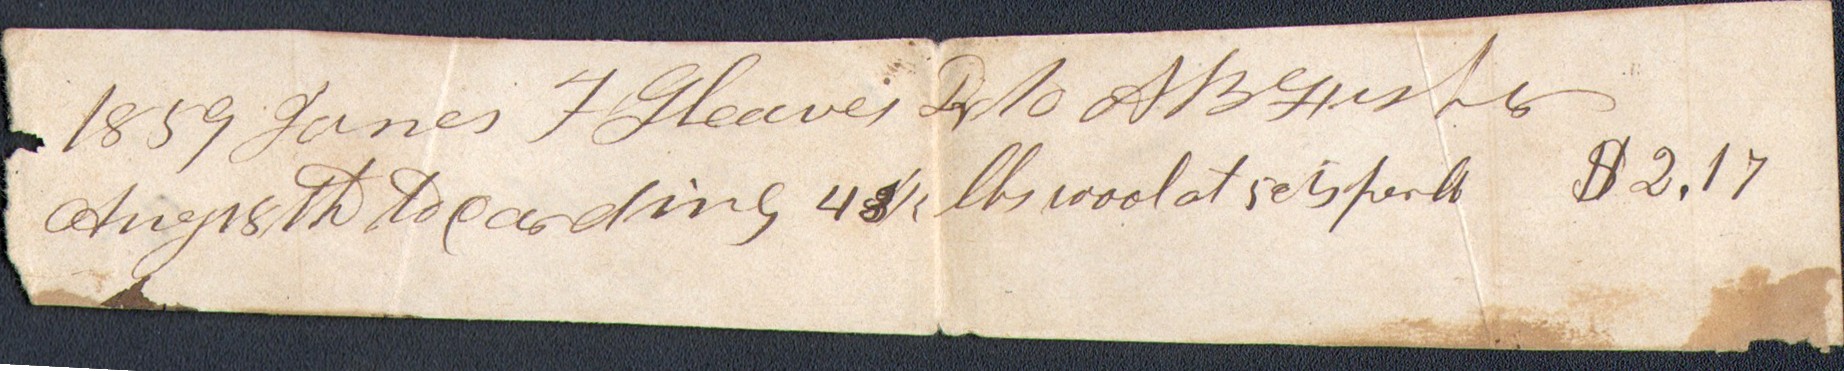 1859 James F Gleaves Dr to A B
Aug 18th To Carding 43 1/2 lbs wool at 5 cts per lb $2.17